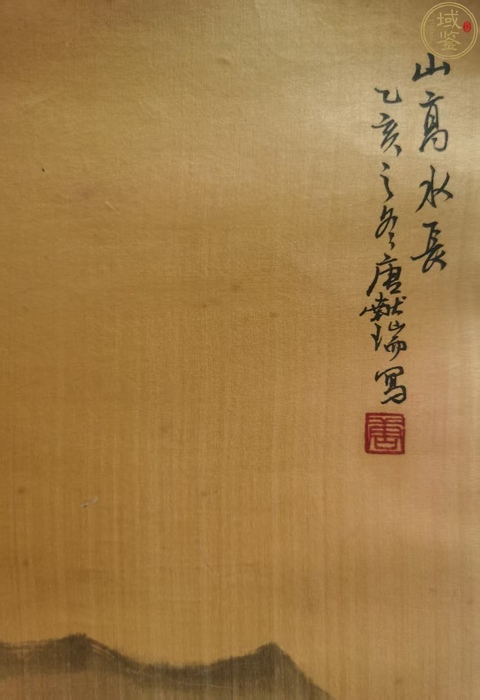 山高水長
乙亥之冬唐獻瑞寫
唐
域鉴